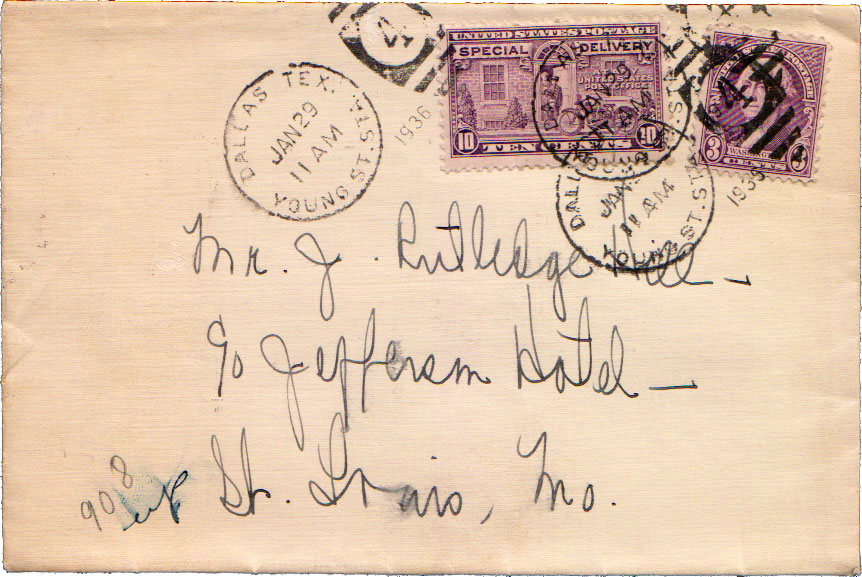 DALLAS TEX.
YOUNG ST. STA.
JAN 29
11 AM
1936
4
UNITED STATES POSTAGE
SPECIAL DELIVERY
UNITED STATES
POST OFFICE
10 TEN CENTS 10
JAN 29
11 AM
4
3 CENTS
JAN
11 AM
YOUNG ST. STA.
1936
Mr. J. Rutledge Hill –
c/o Jefferson Hotel –
St. Louis, Mo.
908